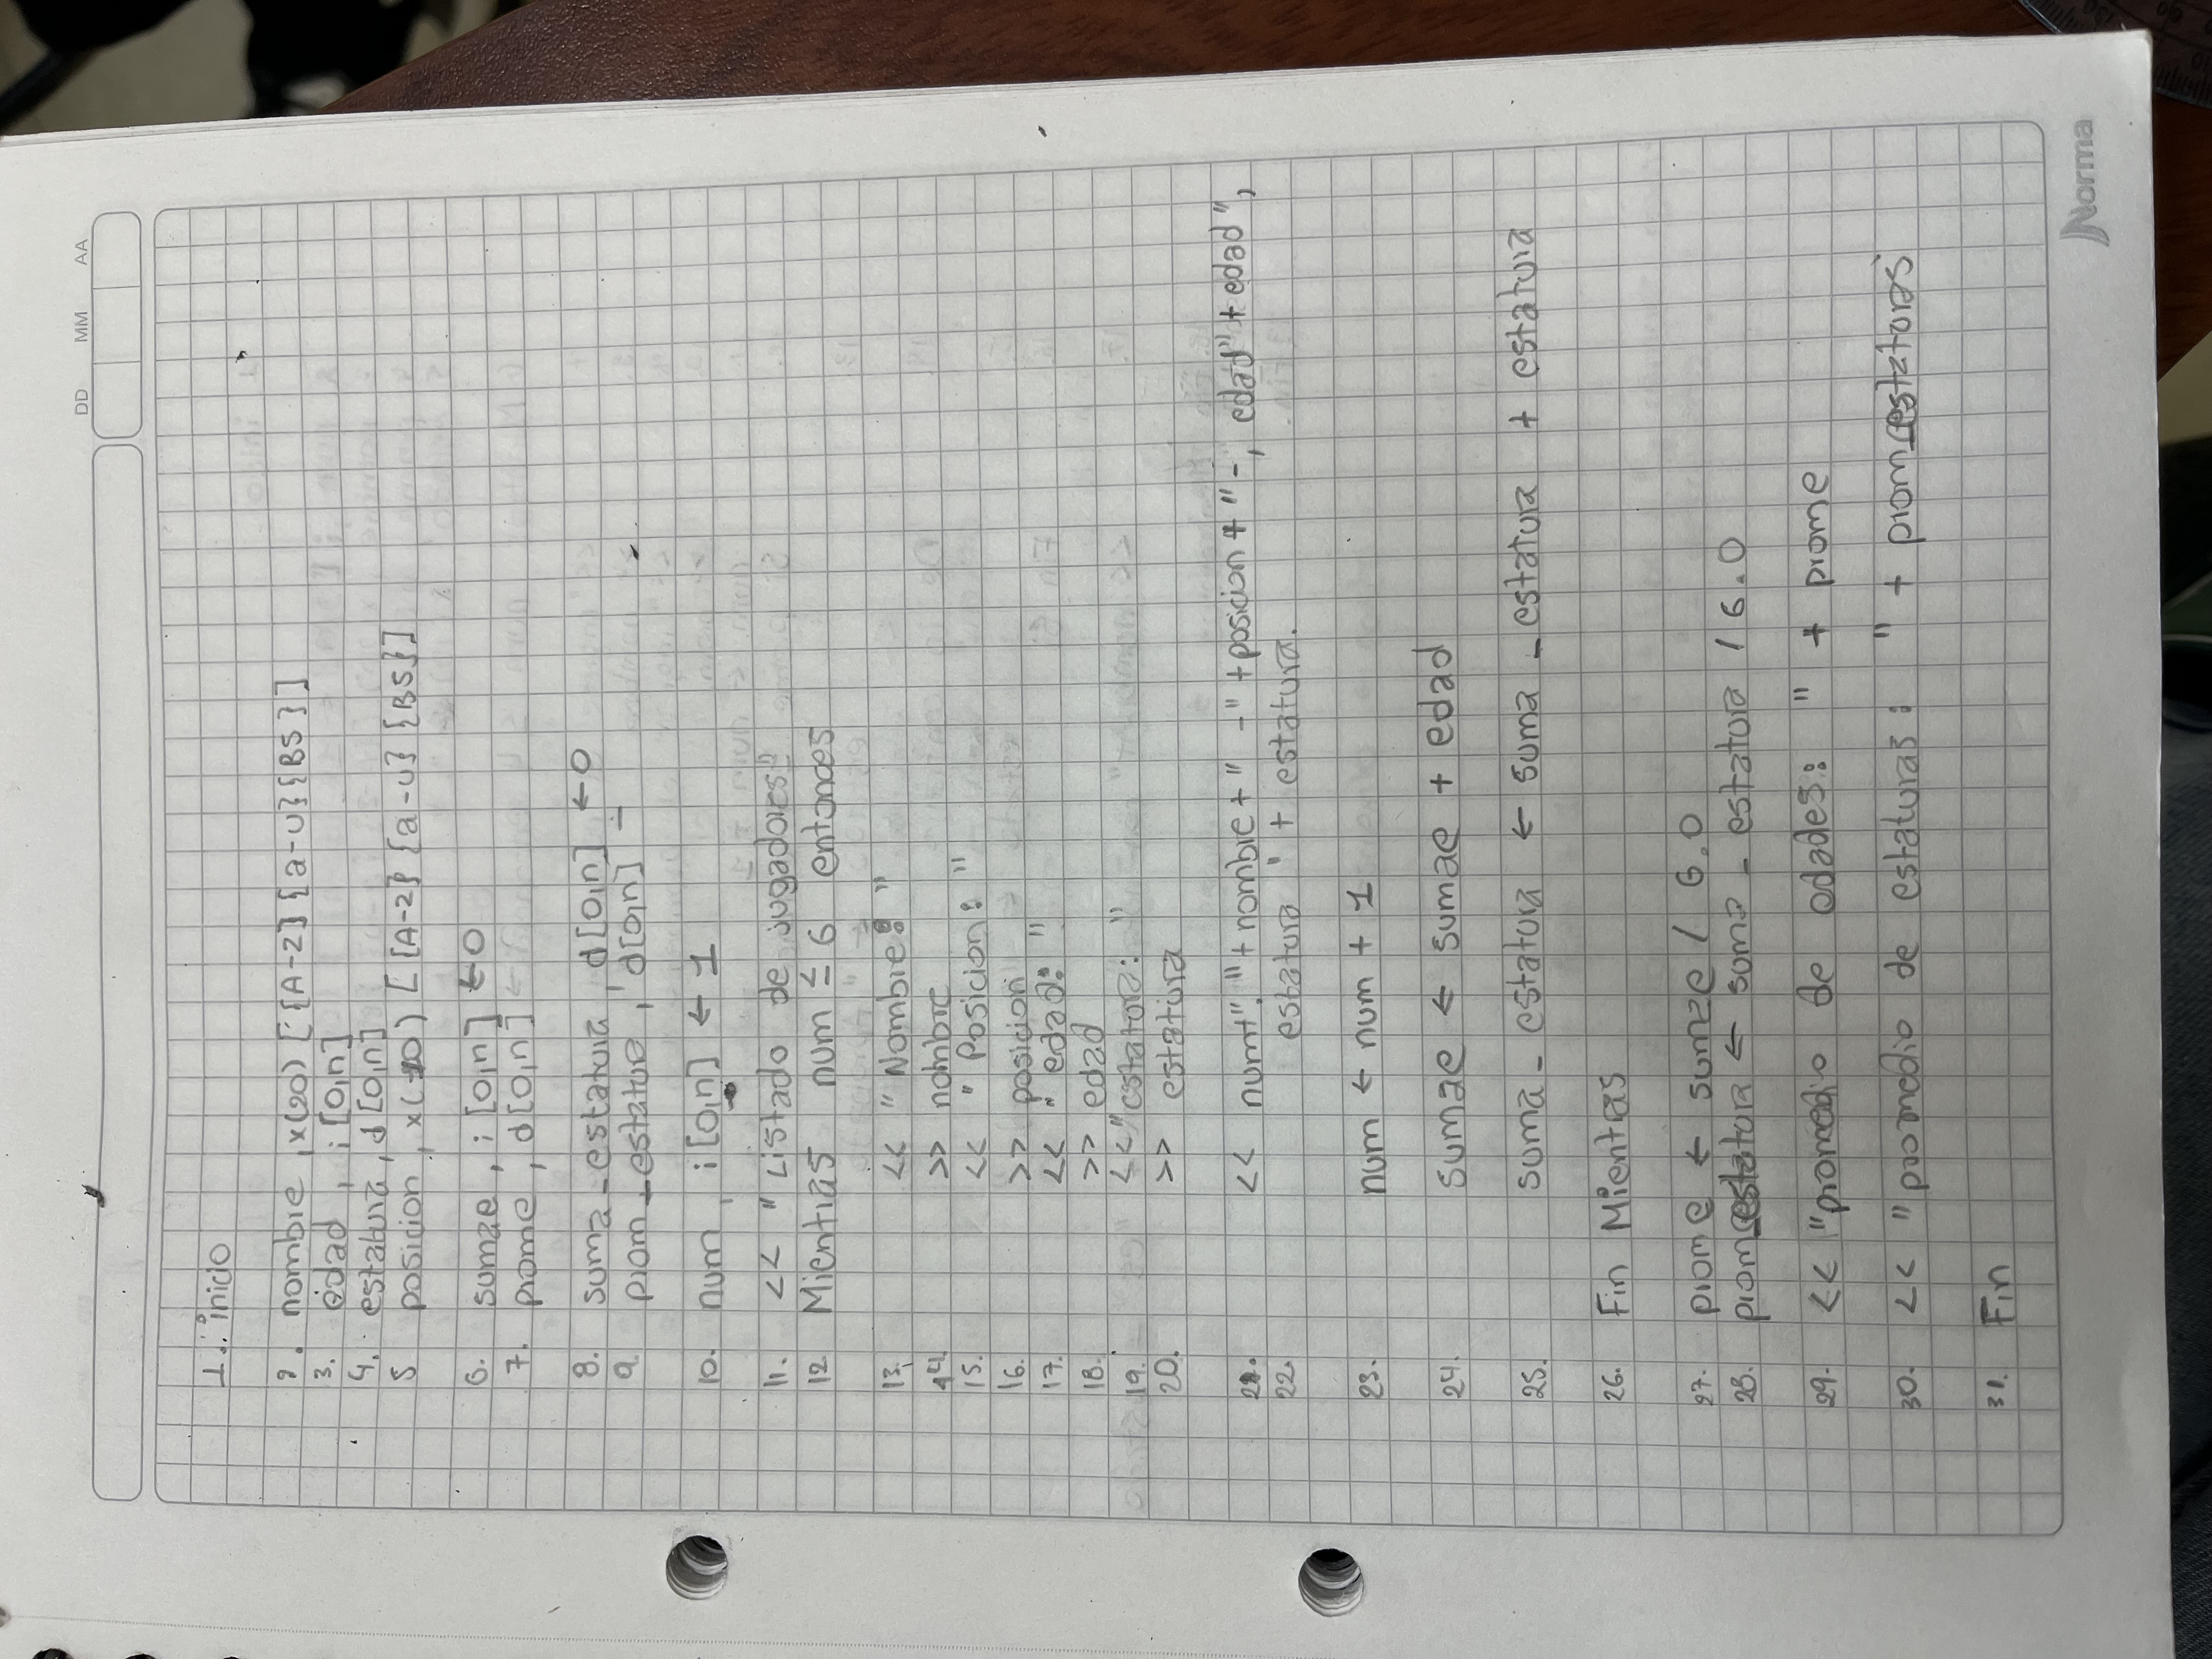 DD MM AA
1. inicio
2. nombre, x(20) [{A-Z}{a-u}{BS}]
3. edad, i[0,n]
4. estatura, d[0,n]
5 posicion, x(20) [{A-Z}{a-u}{BS}]
6. sumae, i[0,n] ← 0
7. prome, d[0,n]
8. suma_estatura, d[0,n] ← 0
9 prom_estature, d[0,n]
10. num, i[0,n] ← 1
11. << "Listado de jugadores"
12 Mientras num ≤ 6 entonces
13. << "Nombre: "
14. >> nombre
15. << "Posicion: "
16. >> posicion
17. << "edad: "
18. >> edad
19. << "estatura: "
20. >> estatura
21. << num+". "+nombre+" -"+posicion+"-, edad"+edad",
22. estatura "+ estatura.
23. num ← num + 1
24. sumae ← sumae + edad
25. suma_estatura ← suma_estatura + estatura
26. Fin Mientras
27. prome ← sumae / 6.0
28. prom_estatura ← suma_estatura / 6.0
29. << "promedio de edades: " + prome
30. << "promedio de estaturas: " + prom_estaturas
31. Fin
Norma